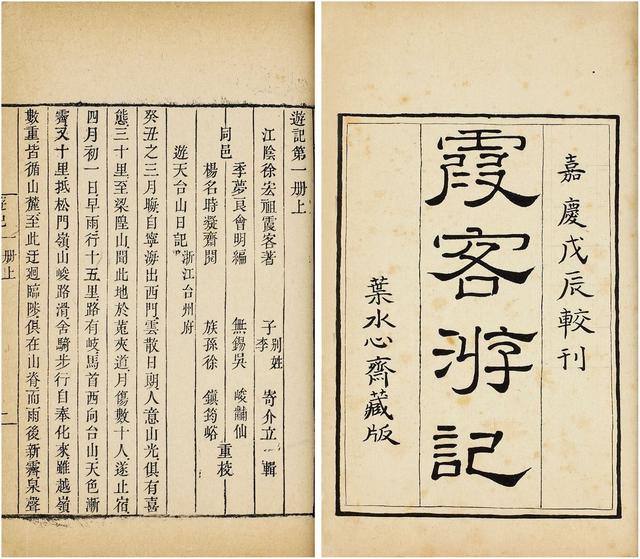 嘉慶戊辰較刊
霞客游記
葉水心齋藏版
遊記第一册上
江陰徐宏祖霞客著 子 别姓李 寄介立 輯
季夢良會明編 無錫吳 峻黼仙
同邑 重校
楊名時凝齋閱 族孫徐 鎮筠峪
遊天台山日記 浙江台州府
癸丑之三月晦自寧海出西門雲散日朗人意山光俱有喜
態三十里至梁隍山聞此地於菟夾道月傷數十人遂止宿
四月初一日早雨行十五里路有岐馬首西向台山天色漸
霽又十里抵松門嶺山峻路滑舍騎步行自奉化來雖越嶺
數重皆循山麓至此迂迴臨陟俱在山脊而雨後新霽泉聲
册上